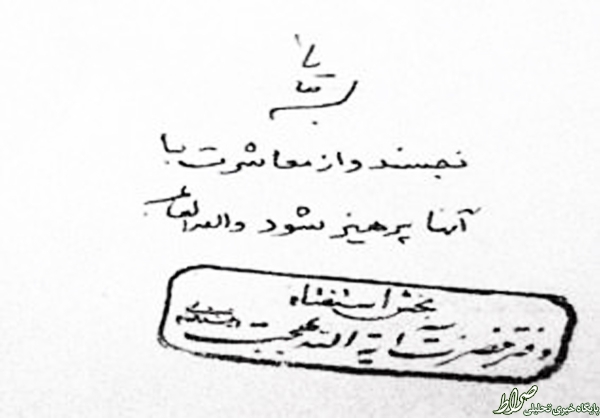 بسمه تعالی
نجسند و از معاشرت با
آنها پرهیز شود والله العالم
بخش استفتاء
دفتر حضرت آیة الله بهجت
صراط
پایگاه خبری تحلیلی